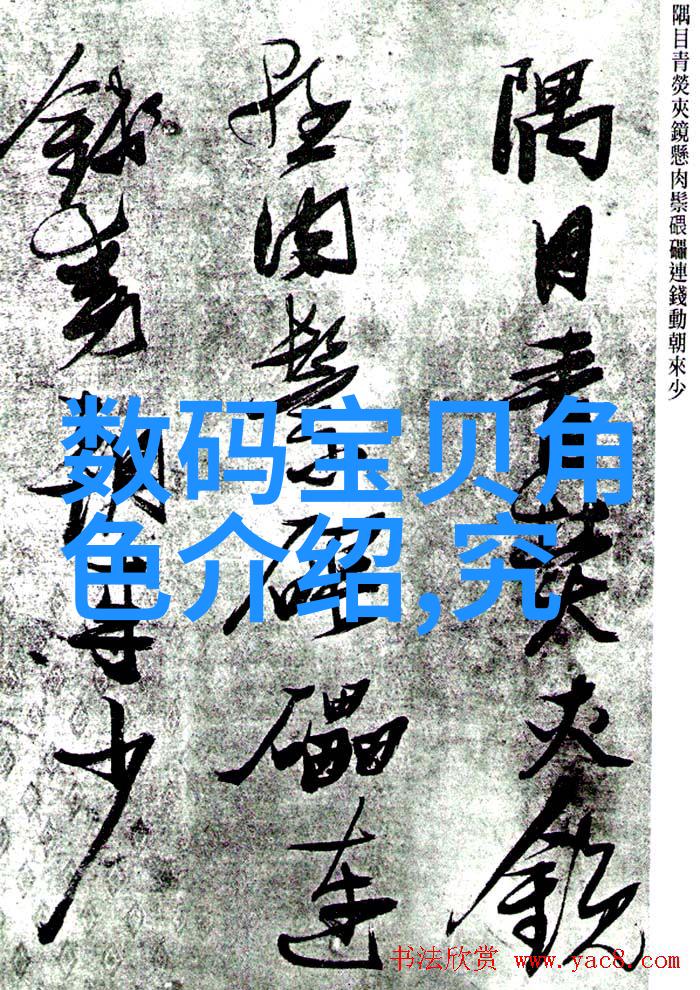 隅目青熒夾鏡懸肉鬃碨礧連錢動朝來少
隅目青熒夾鏡
懸肉鬃碨礧連
錢動朝來少
数码宝贝角
色介绍,究
书法欣赏 www.yac8.com